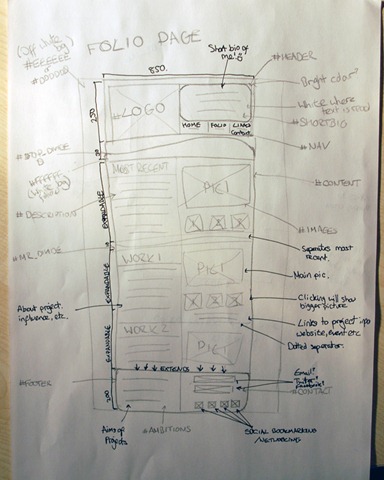 FOLIO PAGE
(Off White
bg)
#EEEEEE
or
#DDDDDD
850
Short bio of
me!
#HEADER
Bright color?
White where
text is
#SHORTBIO
#LOGO
250
HOME
FOLIO
LINKS
Contact
#NAV
#FFFFFF
(white
bg)
#CONTENT
MOST RECENT
PIC 1
EXPANDABLE
#DESCRIPTIONS
#IMAGES
#MR_DIVIDE
Separates most
recent.
WORK 1
PIC 1
Main pic.
EXPANDABLE
About project,
influence, etc.
Clicking will show
bigger picture
Links to project info
website, event etc
WORK 2
PIC 1
Dotted separator.
EXPANDABLE
EXTENDS
#FOOTER
200
Email?
Twitter
Facebook?
#CONTACT
Aims of
Projects
#AMBITIONS
SOCIAL BOOKMARKING
/NETWORKING